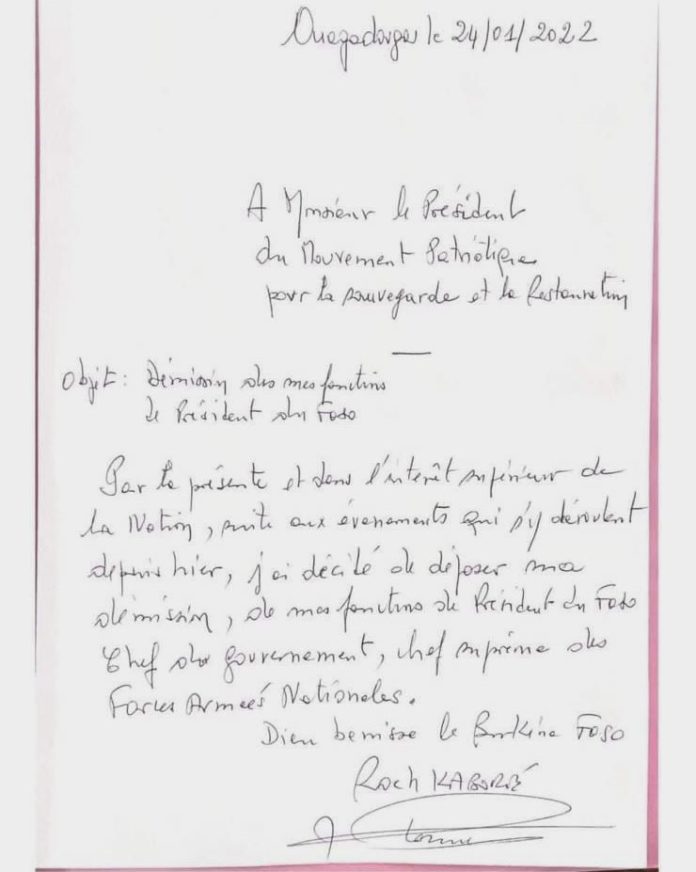 Ouagadougou le 24/01/2022
A Monsieur le Président
du Mouvement Patriotique
pour la sauvegarde et la Restauration
Objet: Démission de mes fonctions
de Président du Faso
Par la présente et dans l'intérêt supérieur de
la Nation, suite aux évenements qui s'y déroulent
depuis hier, j'ai décidé de déposer ma
démission, de mes fonctions de Président du Faso
Chef du gouvernement, chef suprème des
Forces Armées Nationales.
Dieu benisse le Burkina Faso
Roch KABORÉ